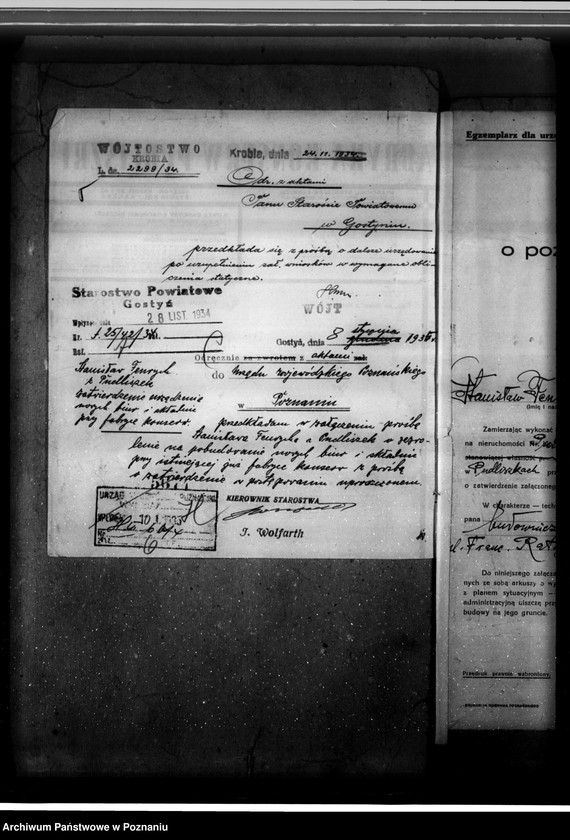 WÓJTOSTWO
KROBIA
L. dz. 2299/34.
Krobia, dnia 24.11. 1934.
Odr. z aktami
Panu Staroście Powiatowemu
w Gostyniu.
przedkłada się z prośbą o dalsze urzędowanie
po uzupełnieniu zał. wniosków w wymagane obli-
czenia statyczne.
WÓJT
Starostwo Powiatowe
Gostyń
28 LIST. 1934
Nr.
Zał.
Gostyń, dnia 8 stycznia 1935 r.
Odręcznie za zwrotem z aktami
do Urzędu Wojewódzkiego Poznańskiego
w Poznaniu
Stanisław Fenrych
z Pudliszek
zatwierdzenie urządzenia
nowych biur i składnic
przy fabryce konserw.
przedkładam w załączeniu prośbę
Stanisława Fenrycha z Pudliszek o zezwo-
lenie na pobudowanie nowych biur i składnic
przy istniejącej fabryce konserw z prośbą
o zatwierdzenie w postępowaniu uproszczonem.
URZĄD
POZNAŃSKI
10.1.1935
6
KIEROWNIK STAROSTWA
J. Wolfarth
Egzemplarz dla urzę
o poz
Stanisław Fen
(Imię i naz
Zamierzając wykonać
na nieruchomości Nr.
stanowiącej własność
w Pudliszkach
o zatwierdzenie załączonego
W charakterze — tech
pana budownicz
Franc. Rat
Do niniejszego załącza
nych ze sobą arkuszy a w
z planem sytuacyjnym —
administracyjną uiszczę prz
budowy na jego gruncie.
Przedruk prawnie wzbroniony.
Archiwum Państwowe w Poznaniu